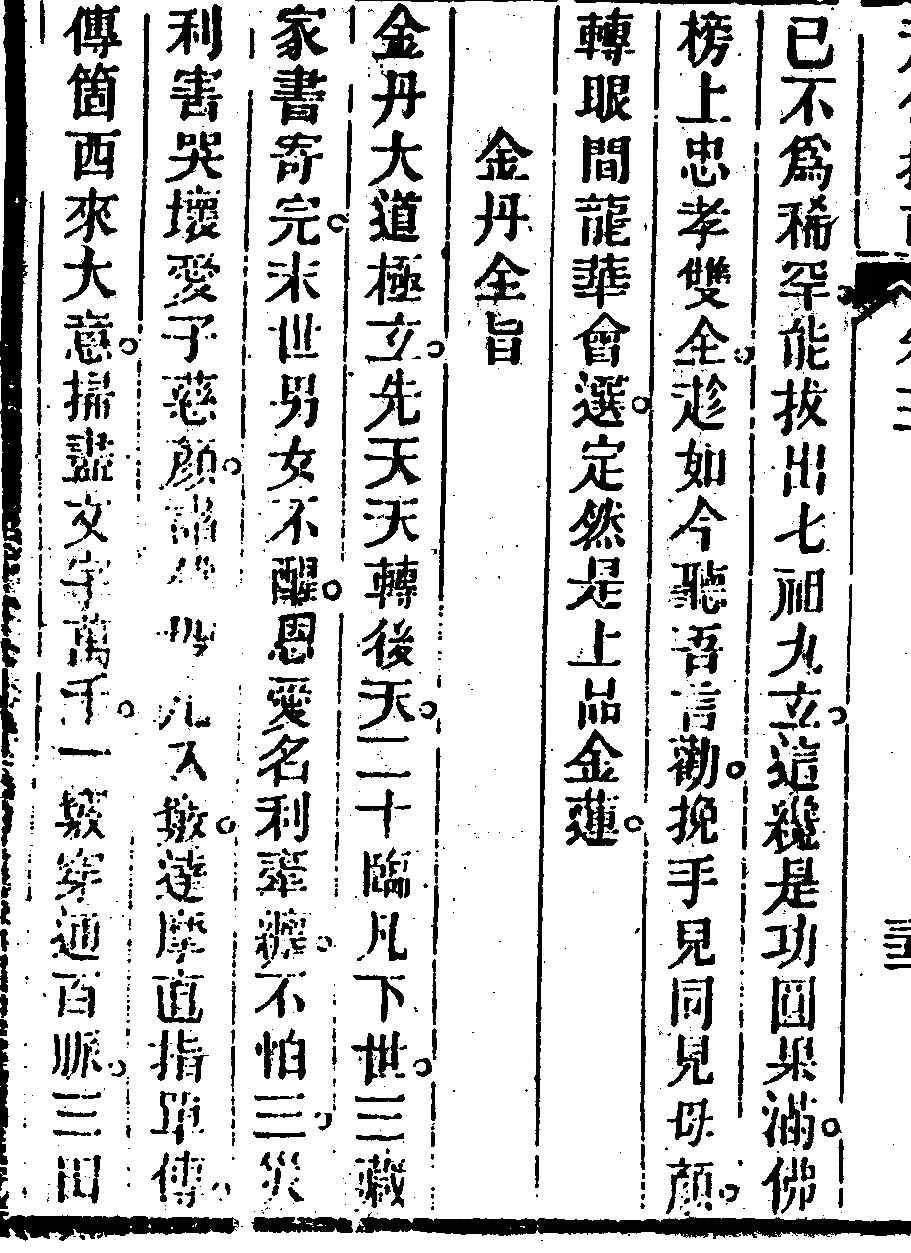 已不爲稀罕能拔出七祖九立。這纔是功圓果滿。佛
榜上忠孝雙全。趁如今聽吾言勸。挽手兒同見母顏。
轉眼間龍華會選。定然是上品金蓮。
金丹全旨
金丹大道極立。先天天轉後天。二十臨凡下世。三藏
家書寄完。末世男女不醒。恩愛名利牽纏。不怕三。災
利害哭壞愛子慈顏。諸凡人撥。達摩直指單傳。
傳箇西來大意。掃盡文字萬千。一撥穿通百脈。三田